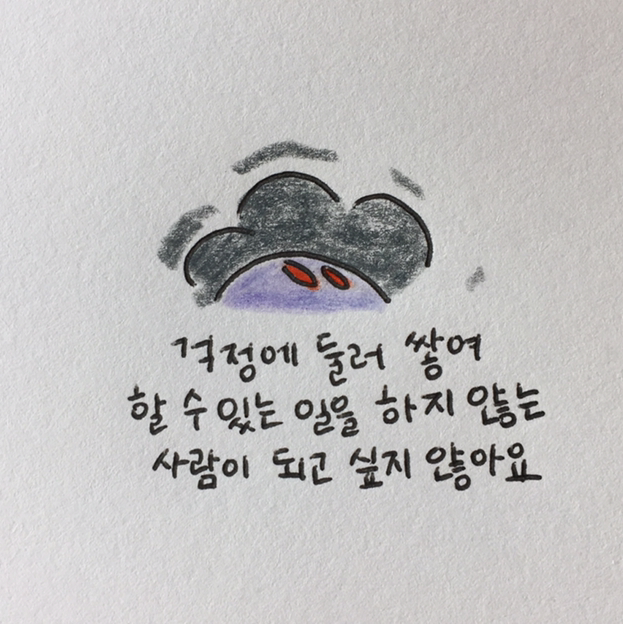 걱정에 둘러 쌓여
할 수 있는 일을 하지 않는
사람이 되고 싶지 않아요